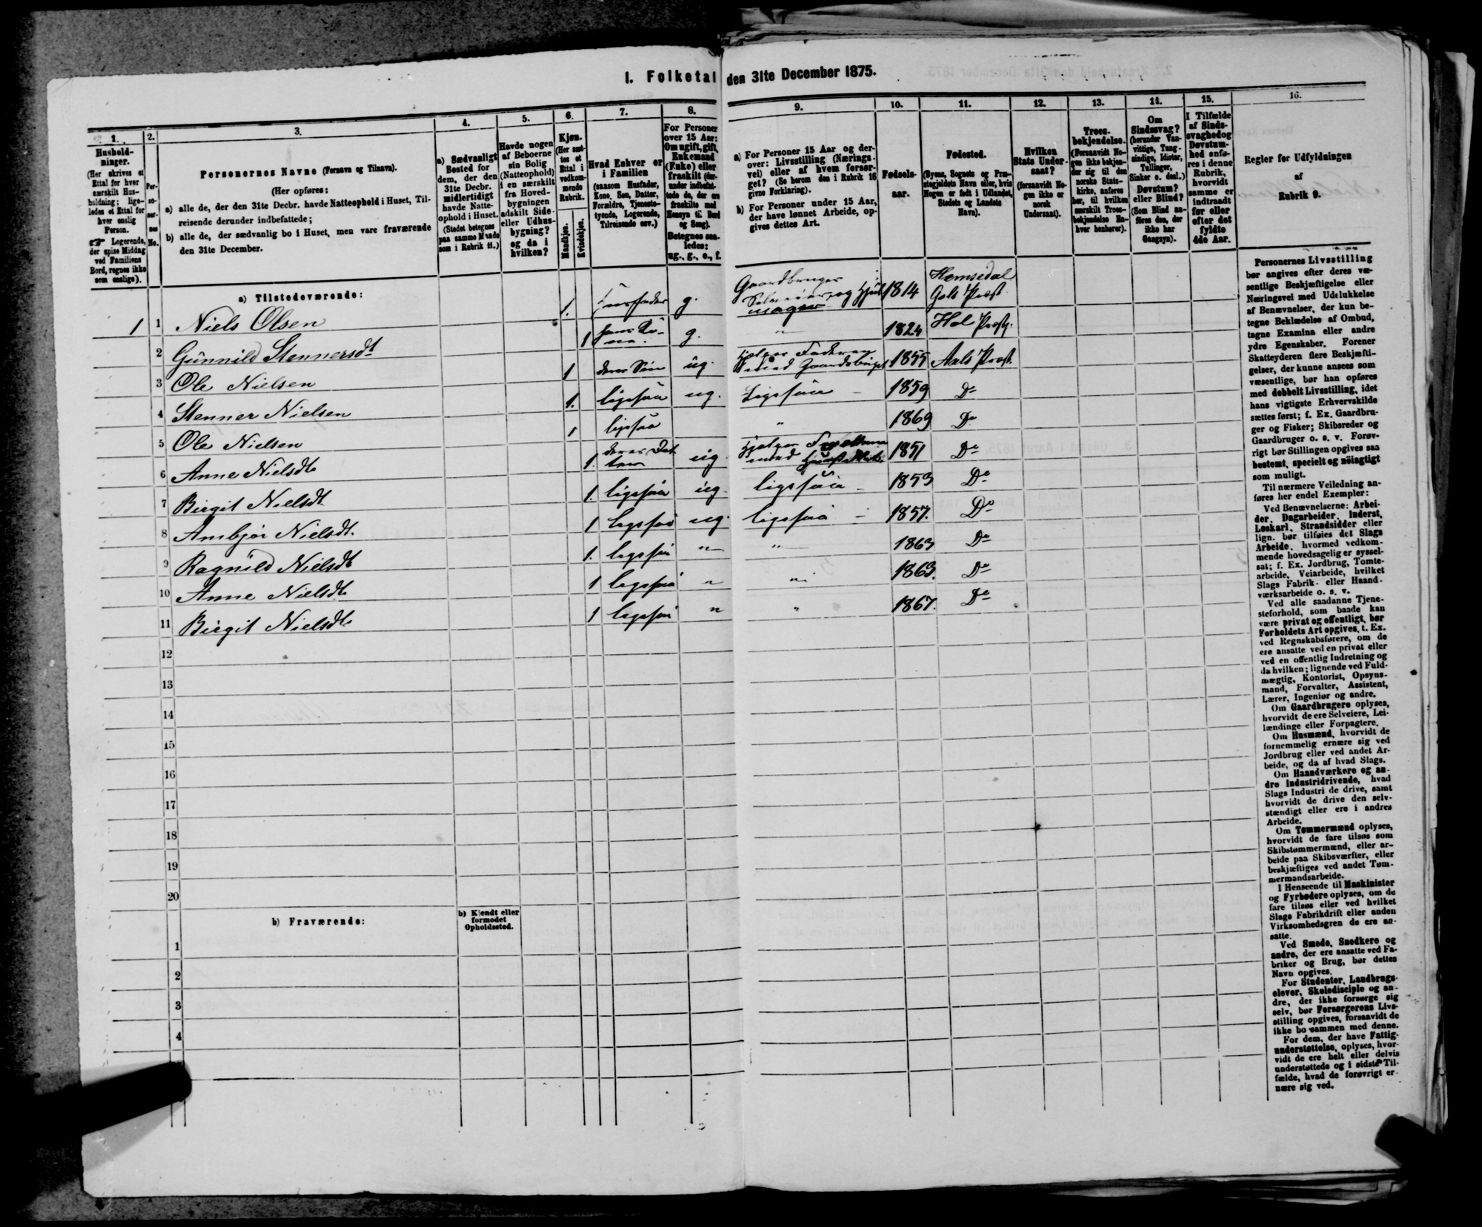 I. Folketal den 31te December 1875.
1. 2. 3. 4. 5. 6. 7. 8. 9. 10. 11. 12. 13. 14. 15. 16.
Husholdninger.
(Her skrives et Ettal for hver særskilt Husholdning; ligeledes et Ettal for hver enslig Person.
Logerende, der spise Middag ved Familiens Bord, regnes ikke som enslige).
Personernes No.
Personernes Navne (Fornavn og Tilnavn).
(Her opføres:
a) alle de, der den 31te Decbr. havde Natteophold i Huset, Tilreisende derunder indbefattede;
b) alle de, der sædvanlig bo i Huset, men vare fraværende den 31te December.
a) Sædvanligt Bosted for dem, der den 31te Decbr. midlertidigt havde Natteophold i Huset.
(Stedet betegnes paa samme Maade som i Rubrik 11.)
Havde nogen af Beboerne sin Bolig (Natteophold) i en særskilt fra Hovedbygningen adskilt Side- eller Udhusbygning? og da i hvilken?
Kjøn.
(Her sættes et Ettal i vedkommende Rubrik.
Mandkjøn.
Kvindekjøn.
Hvad Enhver er i Familien
(saasom Husfader, Kone, Søn, Datter, Forældre, Tjenestetyende, Logerende, Tilreisende osv.)
For Personer over 15 Aar: Om ugift, gift, Enkemand (Enke) eller fraskilt
Betegnes saaledes: ug., g., e., f.
a) For Personer 15 Aar og derover: Livsstilling (Næringsvei) eller af hvem forsørget? (Se herom den i Rubrik 16 givne Forklaring).
b) For Personer under 15 Aar, der have lønnet Arbeide, opgives dettes Art.
Fødselsaar.
Fødested.
(Byens, Sognets og Præstegjeldets Navn eller, hvis Nogen er født i Udlandet, Stedets og Landets Navn).
Hvilken Stats Undersaat?
(forsaavidt Nogen ikke er norsk Undersaat).
Troesbekjendelse.
(Forsaavidt Nogen ikke bekjender sig til den norske Statskirke, anføres her, til hvilken særskilt Troesbekjendelse Nogen hver henhører).
Om Sindssvag? (herunder Vanvittige, Tungsindige, Idioter, Tullinger, Sinker o. desl.) Døvstum? eller Blind? (Som Blind anføres den, der ikke har Gangsyn).
I Tilfælde af Sindssvaghed og Døvstumhed anføres i denne Rubrik, hvorvidt samme er indtraadt før eller efter det fyldte 4de Aar.
Regler for Udfyldningen
af
Rubrik 9.
a) Tilstedeværende:
1 1 Niels Olsen 1. Huusfader g. Gaardbruger Selveier og Hjulmager 1814 Hemsedal Gols Præst
2 Gunnild Stennersdt 1 g. " 1824 Hol Præstg.
3 Ole Nielsen 1 deres Søn ug. Hjelper Faderen med Gaardsbruget 1855 Aals Præst.
4 Stenner Nielsen 1. ligesaa ug. Ligesaa 1859 Do
5 Ole Nielsen 1 ligesaa " 1869 Do
6 Anne Nielsdt 1. deres Datter ug. 1851 Do
7 Birgit Nielsdt 1. ligesaa ug. ligesaa 1853 Do
8 Ambjør Nielsdt. 1 ligesaa ug. ligesaa 1857. Do
9 Ragnild Nielsdt 1. ligesaa " " 1863 Do
10 Anne Nielsdt 1 ligesaa " " 1863. Do
11 Birgit Nielsdt. 1 ligesaa " " 1867. Do
12
13
14
15
16
17
18
19
20
b) Fraværende:
b) Kjendt eller formodet Opholdssted.
1
2
3
4
Personernes Livsstilling
bør angives efter deres væ-
sentlige Beskjæftigelse eller
Næringsvei med Udelukkelse
af Benævnelser, der kun be-
tegne Bekladelse af Ombud,
tagne Examina eller andre
ydre Egenskaber. Forener
Skatteyderen flere Beskjæfti-
gelser, der kunne ansees som
væsentlige, bør han opføres
med dobbelt Livsstilling, idet
hans vigtigste Erhvervskilde
sættes først; f. Ex. Gaardbru-
ger og Fisker; Skibsreder og
Gaardbruger o. s. v. Forøv-
rigt bør Stillingen opgives saa
bestemt, specielt og nøiagtigt
som muligt.
Til nærmere Veiledning an-
føres her endel Exempler:
Ved Benævnelserne: Arbei-
der, Dagarbeider, Inderst,
Løskarl, Strandsidder eller
lign. bør tilføies det Slags
Arbeide, hvormed vedkom-
mende hovedsagelig er syssel-
sat; f. Ex. Jordbrug, Tomte-
arbeide, Veiarbeide, hvilket
Slags Fabrik- eller Haand-
værksarbeide o. s. v.
Ved alle saadanne Tjene-
steforhold, som baade kan
være privat og offentligt, bør
Forholdets Art opgives, t. Ex.
ved Regnskabsførere, om de
ere ansatte ved en privat eller
ved en offentlig Indretning og
da hvilken; lignende ved Fuld-
mægtig, Kontorist, Opsyns-
mand, Forvalter, Assistent,
Lærer, Ingeniør og andre.
Om Gaardbrugere oplyses,
hvorvidt de ere Selveiere, Lei-
lændinge eller Forpagtere.
Om Husmænd, hvorvidt de
fornemmelig ernære sig ved
Jordbrug eller ved andet Ar-
beide, og da af hvad Slags.
Om Haandværkere og an-
dre Industridrivende, hvad
Slags Industri de drive, samt
hvorvidt de drive den selv-
stændigt eller ere i andres
Arbeide.
Om Tømmermænd oplyses,
hvorvidt de fare tilsøs som
Skibstømmermænd, eller ar-
beide paa Skibsværfter, eller
beskjæftiges ved andet Tøm-
mermandsarbeide.
I Henseende til Maskinister
og Fyrbødere oplyses, om de
fare tilsøs eller ved hvilket
Slags Fabrikdrift eller anden
Virksomhedsgren de ere an-
satte.
Ved Smede, Snedkere og
andre, der ere ansatte ved Fa-
briker og Brug, bør dettes
Navn opgives.
For Studenter, Landbrugs-
elever, Skoledisciple og an-
dre, der ikke forsørge sig
selv, bør Forsørgerens Livs-
stilling opgives, forsaavidt de
ikke bo sammen med denne.
For dem, der have Fattig-
understøttelse, oplyses, hvor-
vidt de ere helt eller delvis
understøttede og i sidste Til-
fælde, hvad de forøvrigt er-
nære sig ved.